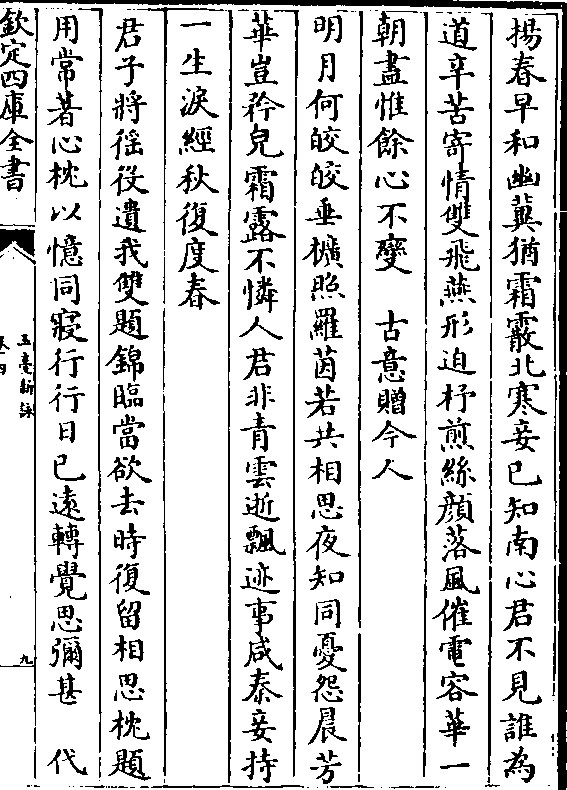 揚春早和幽冀猶霜霰北寒妾已知南心君不見誰為
道辛苦寄情雙飛燕形迫杼煎絲顔落風催電容華一
朝盡惟餘心不變　古意贈今人
明月何皎皎垂櫎照羅茵若共相思夜知同憂怨晨芳
華豈矜皃霜露不憐人君非青雲逝飄迹事咸秦妾持
一生淚經秋復度春
君子將徭役遺我雙題錦臨當欲去時復留相思枕題
用常著心枕以憶同寢行行日已遠轉覺思彌甚　代
欽定四庫全書
玉臺新詠
卷四
九